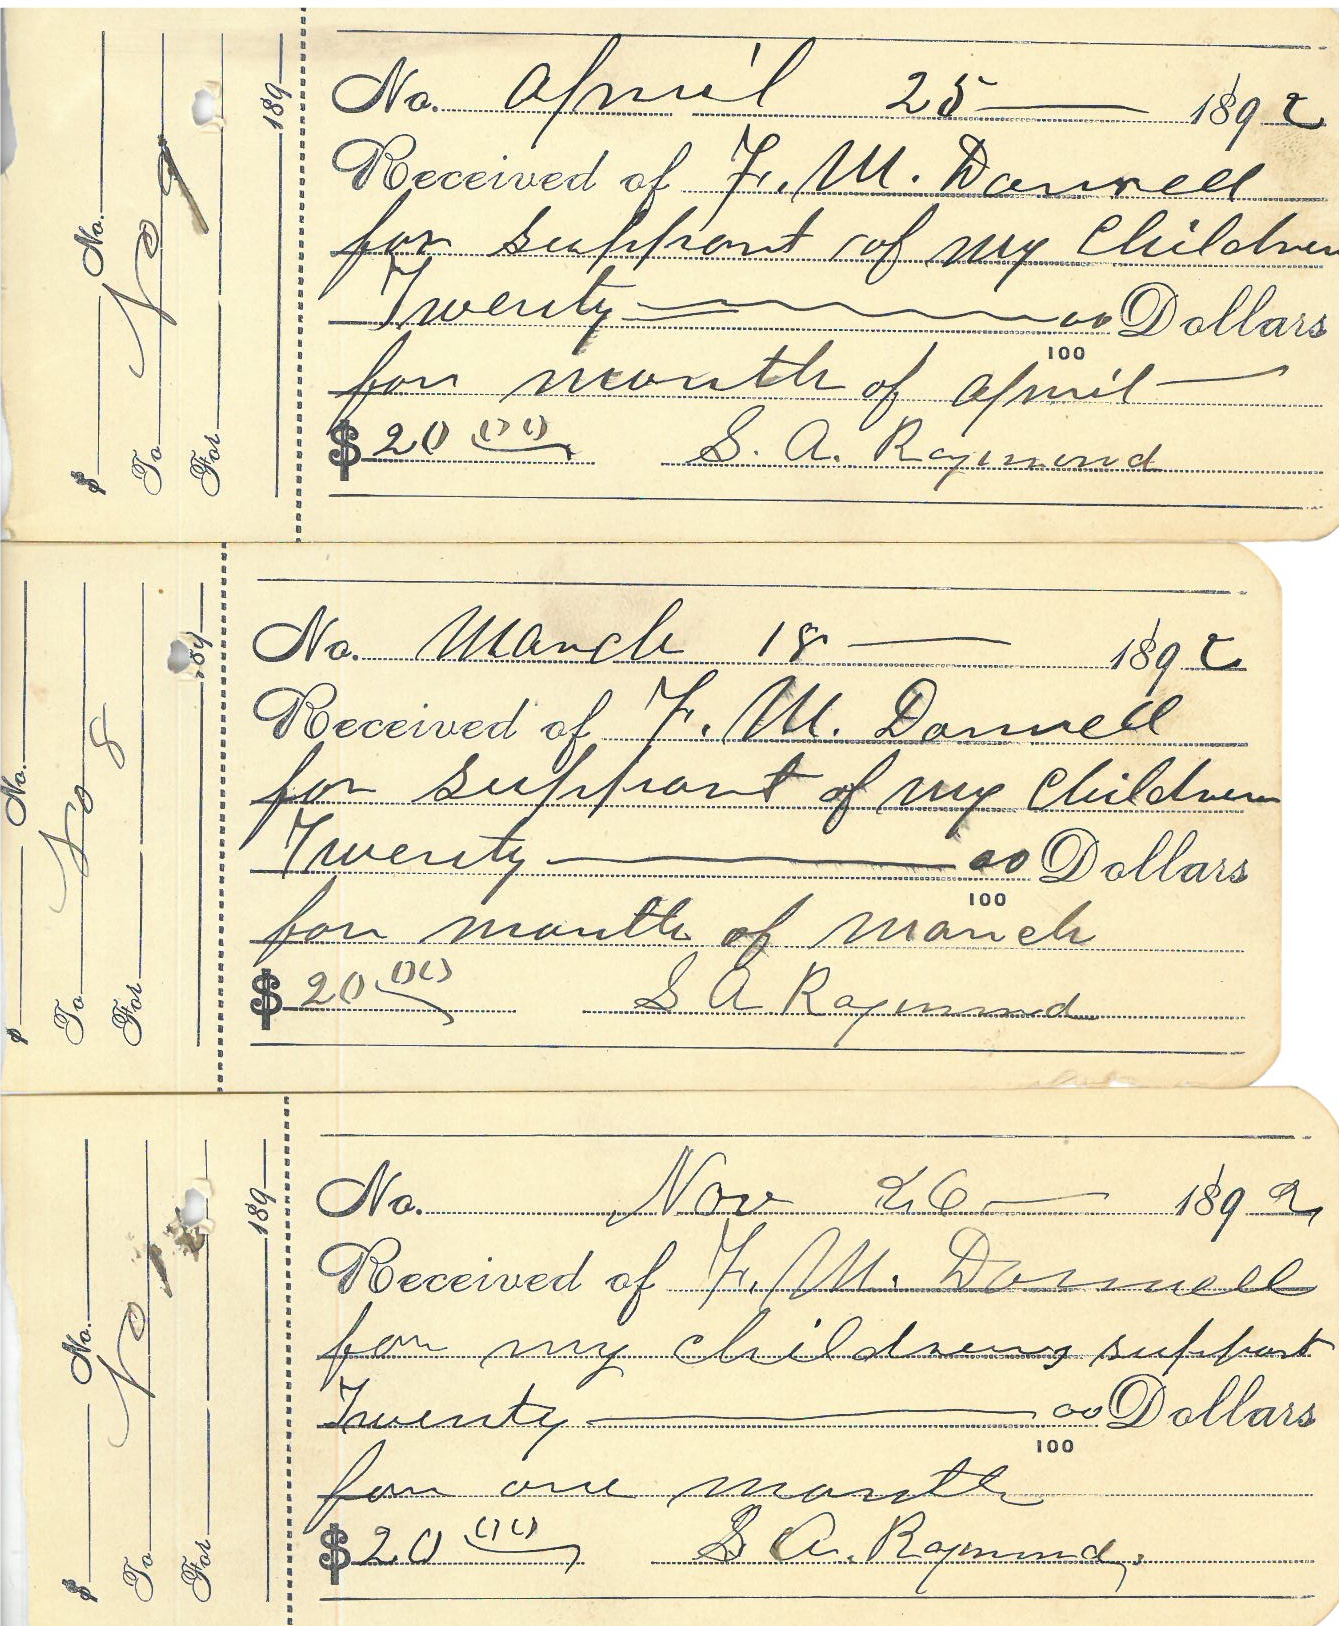 No. April 25 1892
Received of F. M. Donnell
for support of my Children
Twenty 00/100 Dollars
for month of April
$ 20 00 S. A. Raymond
189
No.
$
To No 9
For
No. March 18 1892
Received of F. M. Donnell
for support of my Children
Twenty 00/100 Dollars
for month of March
$ 20 00 S A Raymond
189
No.
$
To No 8
For
No. Nov 26 1892
Received of F. M. Donnell
for my childrens support
Twenty 00/100 Dollars
for one month
$ 20 00 S A. Raymond,
189
No.
$
To No
For